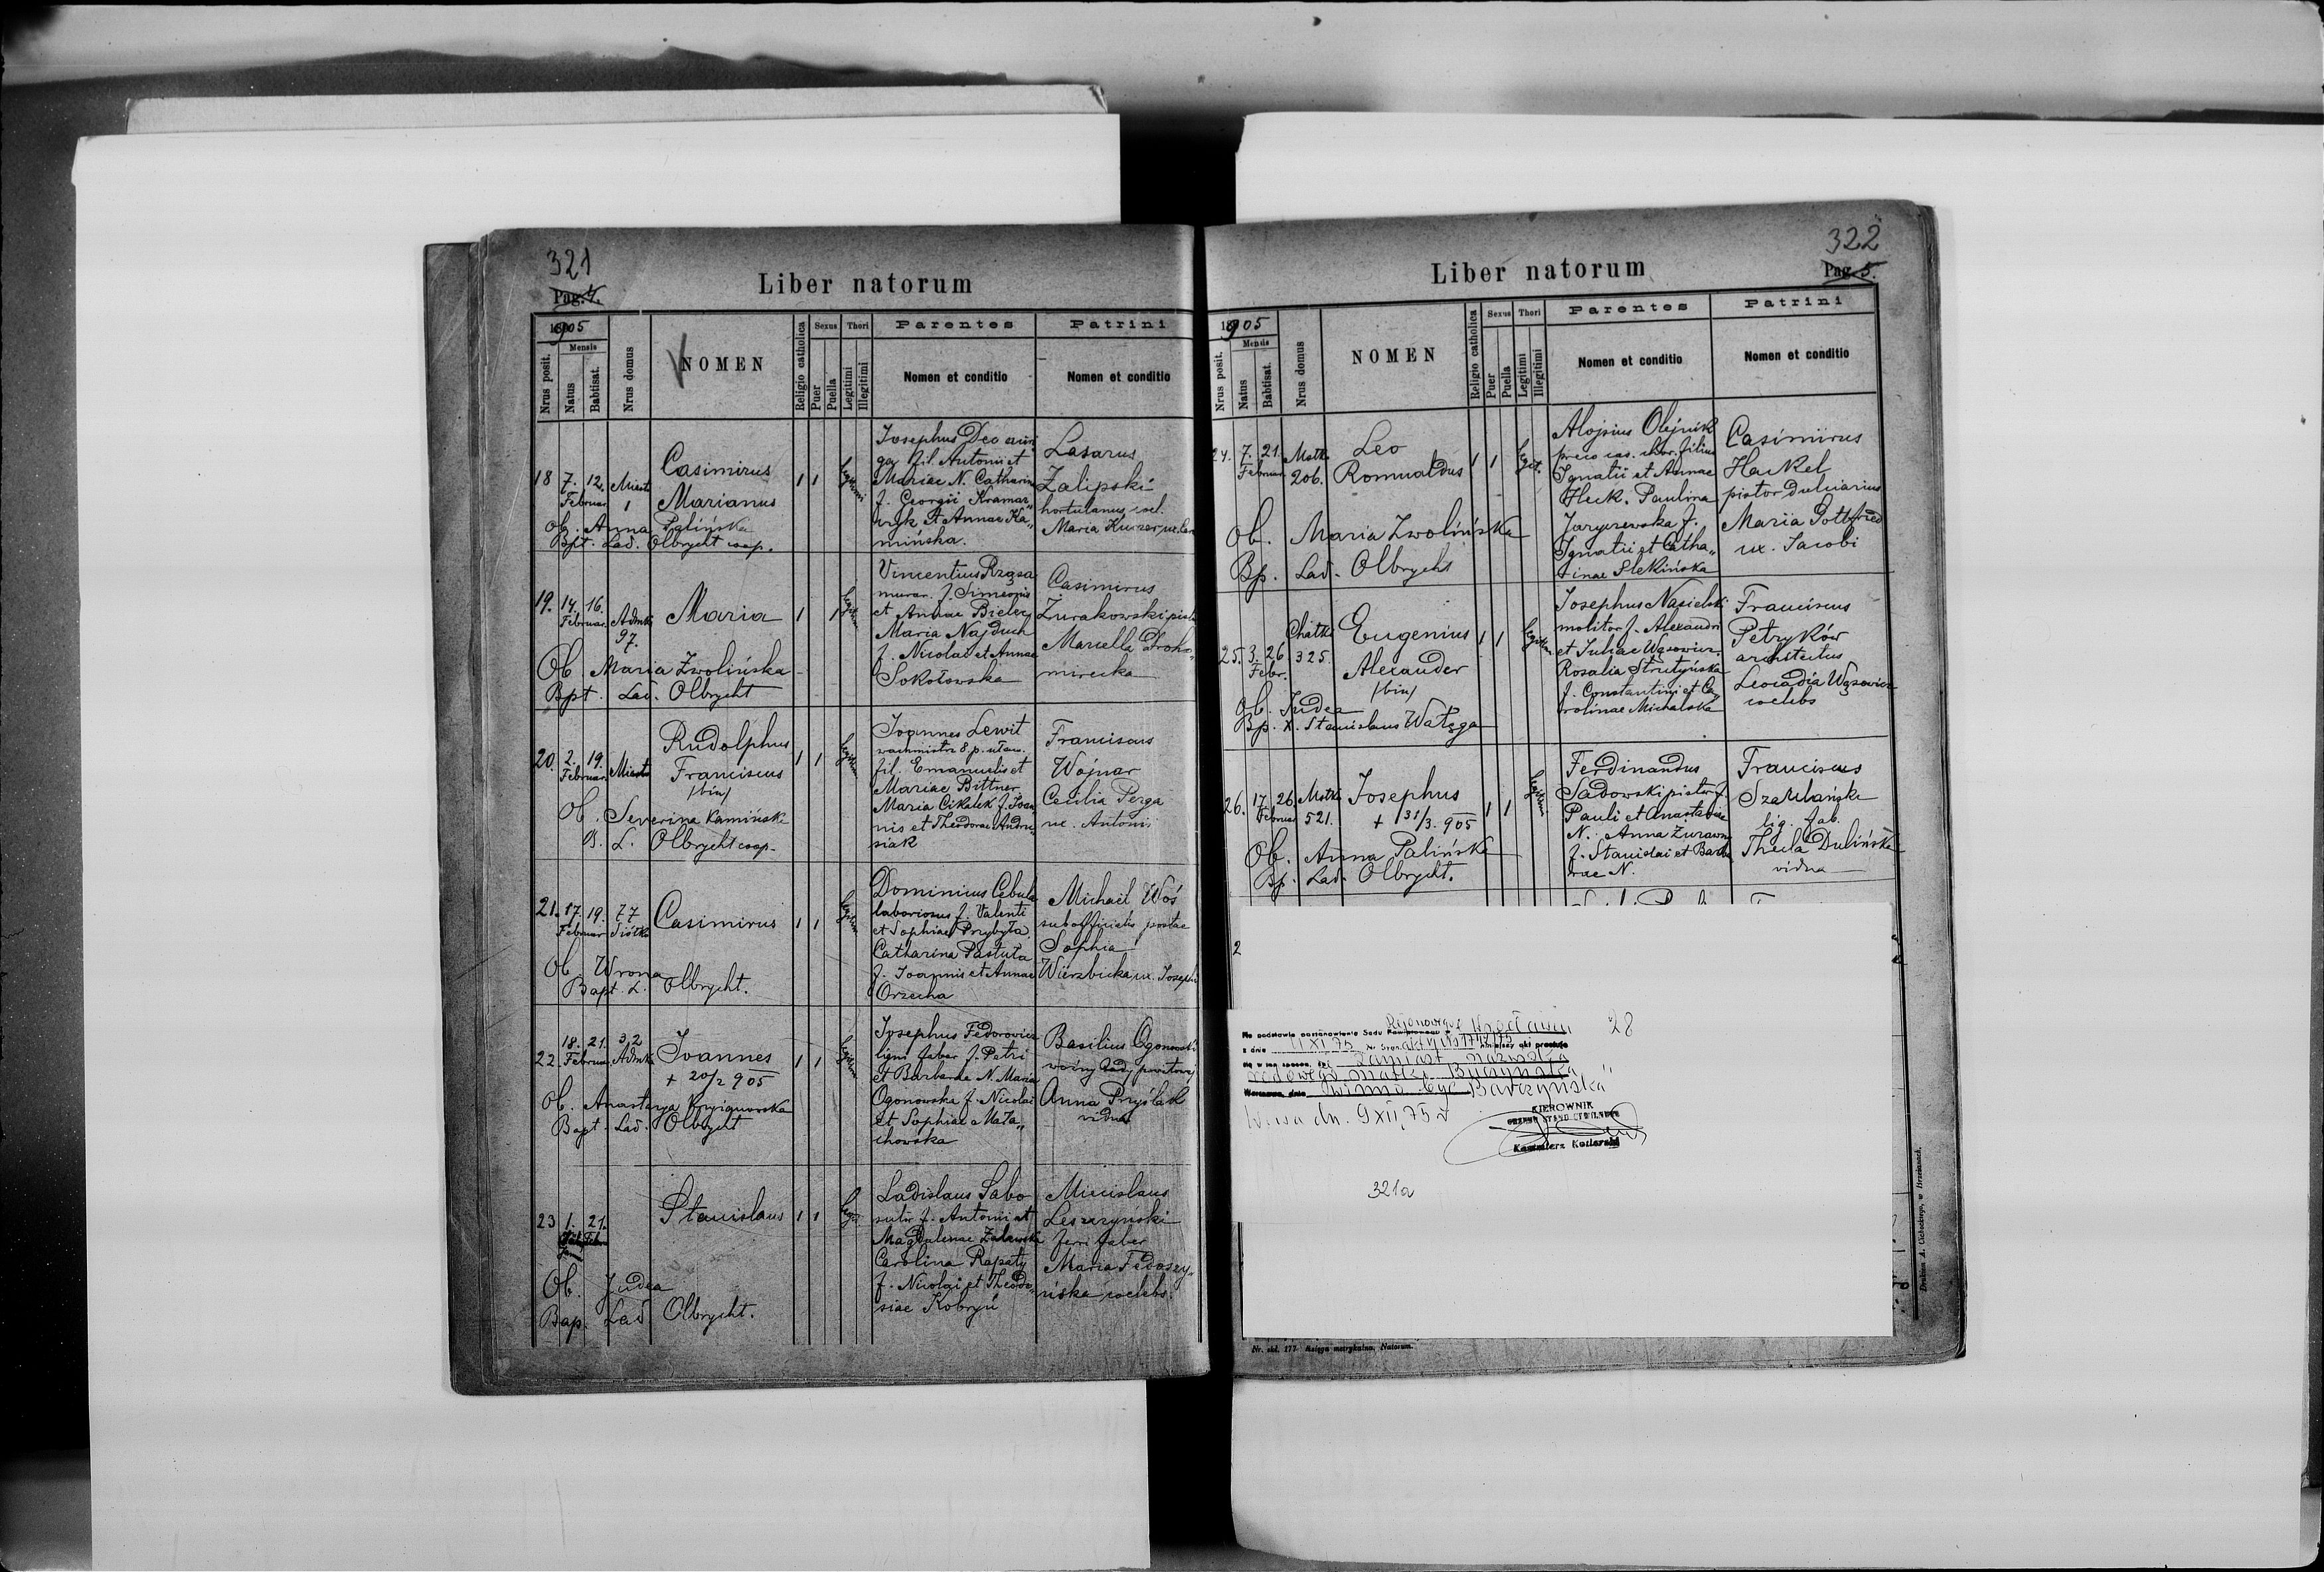 321
Pag. 4.
Liber natorum
1905
Mensis
Nrus posit.
Natus
Babtisat.
Nrus domus
NOMEN
Religio catholica
Sexus
Puer
Puella
Thori
Legitimi
Illegitimi
Parentes
Nomen et conditio
Patrini
Nomen et conditio
18 7. 12. Februar Miasto 1
Casimirus
Marianus
1 1
Josephus Deo auri
ga fil. Antonii et
Mariae N. Catharina
f. Georgii Kramar„
czyk et Annae Ka„
mińska.
Lasarus
Zalipski
hortulanus, coel.
Maria
Ob. Anna Palińska
Bpt. Lad. Olbrycht coop.
19. 14. 16. Februar. Admk. 97.
Maria
1 1
Vincentius Rząsa
murar. f. Simeonis
et Annae Bieler
Maria Najduch
f. Nicolai et Annae
Sokołowska
Casimirus
Żurakowski
Marcella Droho„
mirecka
Ob. Maria Zwolińska
Bpt. Lad. Olbrycht
20. 2. 19. Februar. Miasto
Rudolphus
Franciscus
/bin/
1 1
Joannes Lewit
wachmistrz 8. p. ułan.
fil. Emanuelis et
Mariae Bittner
Maria Cikalek f. Joan
nis et Theodorae Andru„
siak
Franciscus
Wojnar
Cecilia Perga
ux. Antonii
Ob. Severina Kamińska
B. L. Olbrycht coop.
21. 17. 19. Februar 77 Siółko
Casimirus
1 1
Dominicus Cebula
laboriosus f. Valenti
et Sophiae Przybyła
Catharina Pastuła
f. Joannis et Annae
Orzecha
Michael Woś
subofficialis postae
Sophia
Wierzbicka ux. Josephi
Ob. Wrona
Bapt. L. Olbrycht.
22. 18. 21. Februar 32 Admk.
Joannes
+ 20/2 905
1 1
Josephus Fedorowicz
ligni faber f. Petri
et Barbarae N. Maria
Ogonowska f. Nicolai
et Sophiae Mała„
chowska
Basilius Ogonowski
woźny Rady powiatowej
Anna Przyślak
vidua
Ob. Anastazya
Bapt. Lad. Olbrycht
23 1. 21.
Stanislaus
1 1
Ladislaus Sabo
sutor f. Antonii et
Magdalenae Zalewski
Carolina Rapaty
f. Nicolai et Theodo„
siae Kobryń
Miecislaus
Leszczyński
ferri faber
Maria Fedoszy„
ńska coelebs.
Ob. Judea
Bap. Lad Olbrycht.
322
Pag. 5.
Liber natorum
1905
Mensis
Nrus posit.
Natus
Babtisat.
Nrus domus
NOMEN
Religio catholica
Sexus
Puer
Puella
Thori
Legitimi
Illegitimi
Parentes
Nomen et conditio
Patrini
Nomen et conditio
24. 7. 21. Februar Matk. 206.
Leo
Romualdus
1 1 legit.
Alojsius Olejnik
filius
Ignatii et Annae
Heck. Paulina
Jaryczewska f.
Ignatii et Catha„
rinae Slekińska
Casimirus
Hackel
pistor dulciarius
Maria Gottfried
ux. Jacobi
Ob. Maria Zwolińska
Bp. Lad. Olbrycht
25. 3. 26 Febr. Chatki 325.
Eugenius
Alexander
/bin/
1 1
Josephus Nasielski
molitor f. Alexandri
et Juliae Wąsowicz.
Rosalia Strutyńska
f. Constantini et Ca„
rolinae Michalska
Franciscus
Petryków
architectus
Leocadia Wąsowicz
coelebs
Ob. Judea
Bp. X. Stanislaus Watęga
26. 17. 26. Februar Matk. 521.
Josephus
+ 31/3. 905
1 1
Ferdinandus
Sadowski pistor f.
Pauli et Anastasiae
N. Anna
f. Stanislai et Barba
rae N.
Franciscus
Szamlański
lig. fab.
Thecla Dulińska
vidua
Ob. Anna Palińska
Bp. Lad. Olbrycht.
2
Na podstawie postanowienia Sądu Rejonowego Wrocławiu
z dnia 11 XI 75
28
się w ten sposób, że zamiast nazwiska
rodowego matki Buczyńska
winno być „Barczyńska"
dn. 9 XII 75 r
KIEROWNIK
URZĘDU STANU CYWILNEGO
Kazimierz Kotlarski
321a
Nr. skł. 177. Księga metrykalna. Natorum.